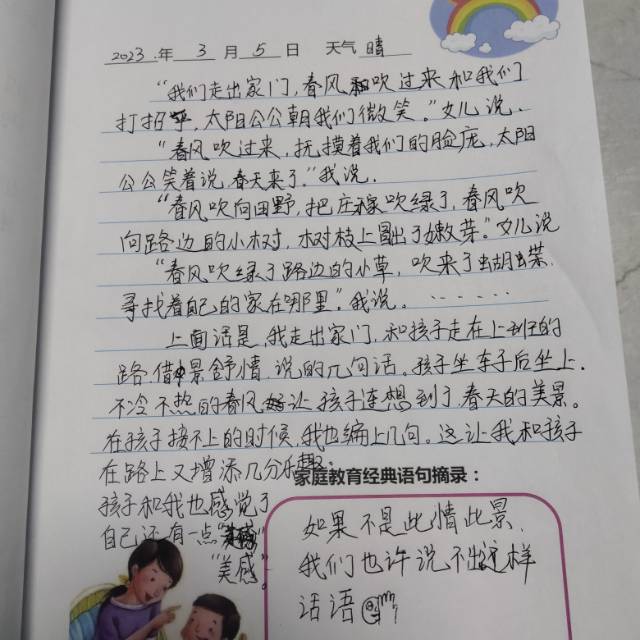 2023.年 3 月 5 日 天气 晴
“我们走出家门,春风吹过来和我们
打招乎,太阳公公朝我们微笑。”女儿说.
“春风吹过来,抚摸着我们的脸庞,太阳
公公笑着说,春天来了.”我说.
“春风吹向田野,把庄稼吹绿了,春风吹
向路边的小树,树枝上冒出了嫩芽。”女儿说
“春风吹绿了路边的小草,吹来了蝴蝶
寻找着自己的家在哪里”.我说。……
上面话是,我走出家门,和孩子走在上班的
路.借景舒情.说的几句话。孩子坐车子后坐上.
不冷不热的春风让孩子连想到了春天的美景。
在孩子接不上的时候.我也编上几句。这让我和孩子
在路上又增添几分乐趣.
孩子和我也感觉了
自己还有一点
“美感”
家庭教育经典语句摘录:
如果不是此情此景.
我们也许说不出这样
话语